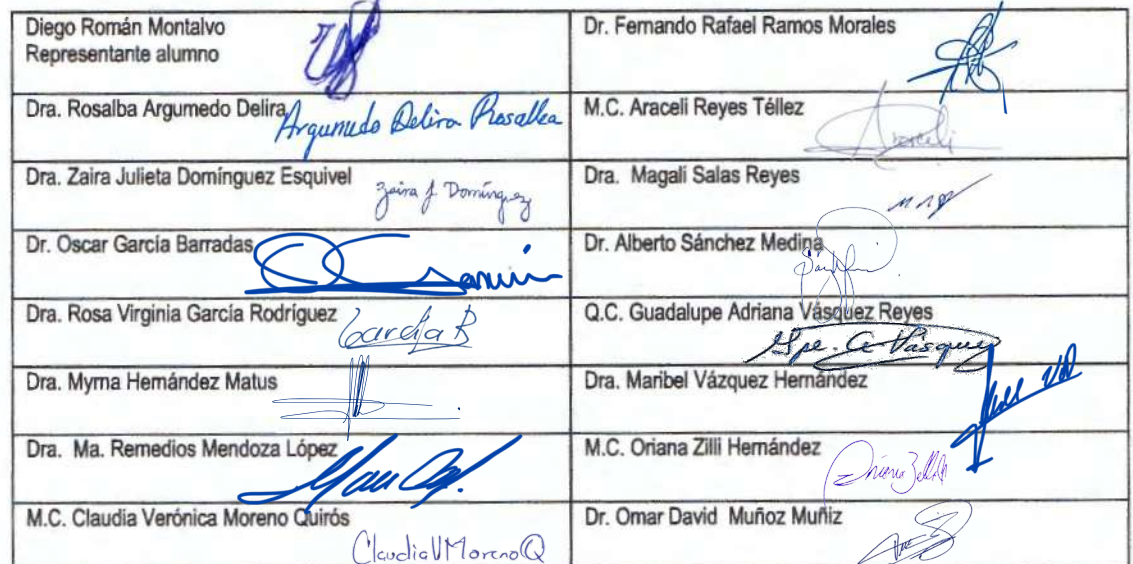 Diego Román Montalvo
Representante alumno
Dr. Fernando Rafael Ramos Morales
Dra. Rosalba Argumedo Delira
Argumedo Delira Rosalba
M.C. Araceli Reyes Téllez
Araceli
Dra. Zaira Julieta Domínguez Esquivel
Zaira J Domínguez
Dra. Magali Salas Reyes
Dr. Oscar García Barradas
Dr. Alberto Sánchez Medina
Dra. Rosa Virginia García Rodríguez
García R
Q.C. Guadalupe Adriana Vásquez Reyes
Gpe. A Vásquez
Dra. Myrna Hernández Matus
Dra. Maribel Vázquez Hernández
Dra. Ma. Remedios Mendoza López
M.C. Oriana Zilli Hernández
M.C. Claudia Verónica Moreno Quirós
ClaudiaVMorenoQ
Dr. Omar David Muñoz Muñiz